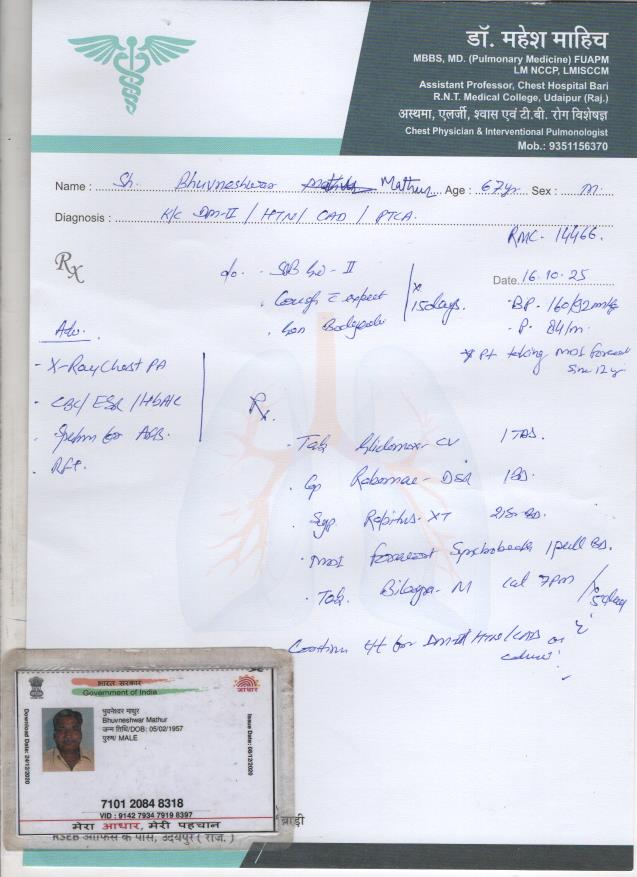 डॉ. महेश माहिच
MBBS, MD. (Pulmonary Medicine) FUAPM
LM NCCP, LMISCCM
Assistant Professor, Chest Hospital Bari
R.N.T. Medical College, Udaipur (Raj.)
अस्थमा, एलर्जी, श्वास एवं टी.बी. रोग विशेषज्ञ
Chest Physician & Interventional Pulmonologist
Mob.: 9351156370
Name : Sh. Bhuvneshwar Mathur Age : 67yr Sex : M.
Diagnosis : K/C DM-II / HTN / CAD / PTCA.
RMC- 14466.
Rx
Date 16.10.25
SOB Gr-II
Cough c expect
x 15days.
BP- 160/92mmHg
P- 84/m
Pt taking MDI foracort
since 12 yr
Adv.
- X-Ray Chest PA
- CBC/ESR/HbA1C
- Sputum for AFB.
- RFT.
Rx.
- Tab CV 1 TDS.
- Cap DSR 1 BD.
- Syp. XT BD.
- MDI foracort Synchrobreathe 1 puff BD.
- Tab. M 7pm
x 5days
Continue t/t for DM-II HTN/CAD
भारत सरकार
Government of India
आधार
भुवनेश्वर माथुर
Bhuvneshwar Mathur
जन्म तिथि/DOB: 05/02/1957
पुरुष/ MALE
Download Date: 24/12/2020
Issue Date: 08/12/2020
7101 2084 8318
VID : 9142 7934 7919 8397
मेरा आधार, मेरी पहचान
ऑफिस के पास, उदयपुर ( राज. )